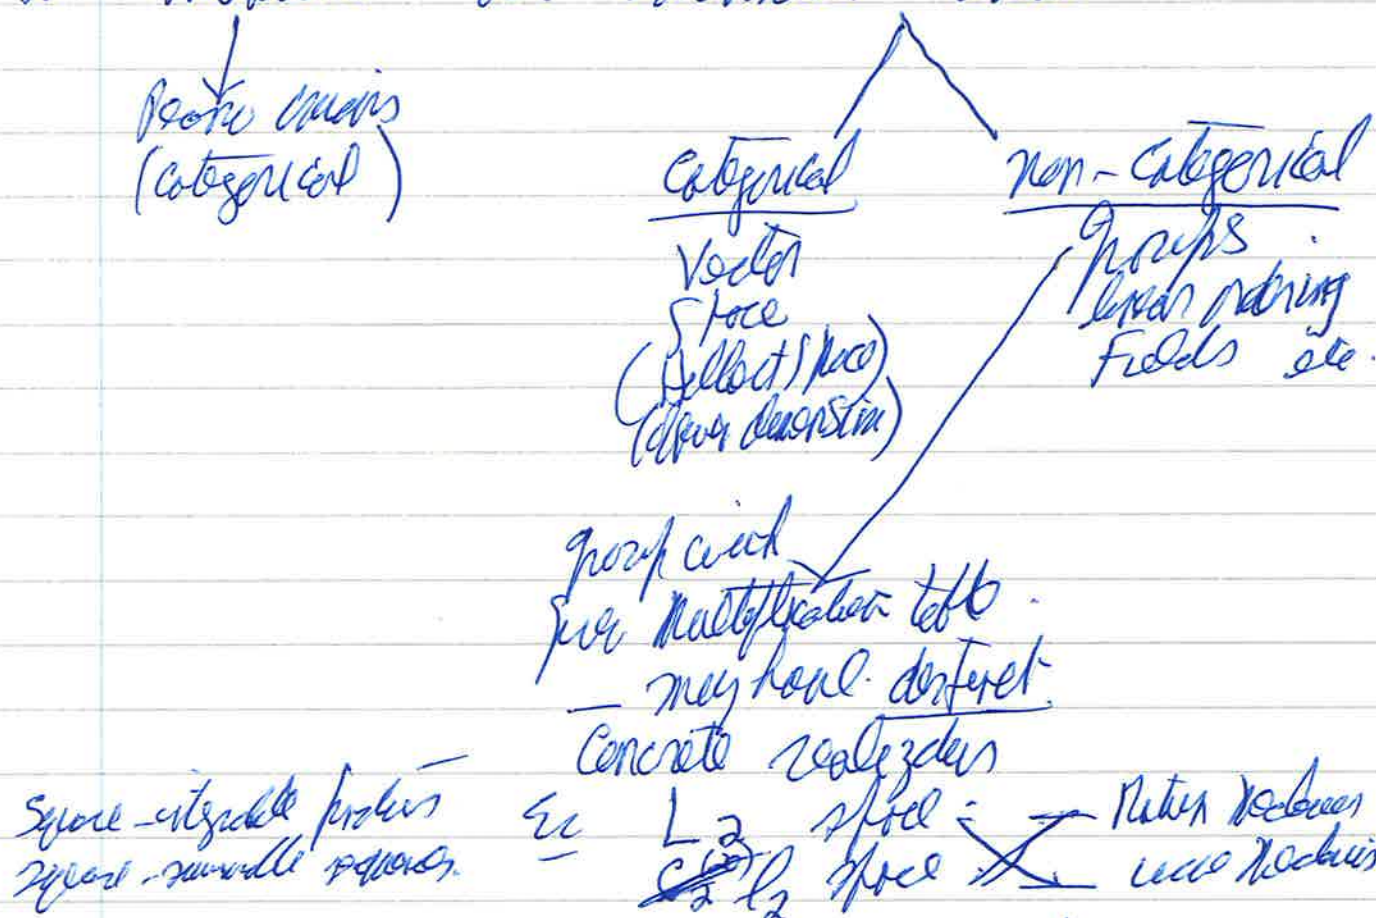 Peano axioms
(categorical)
Categorical
Vector
Space
(Hilbert Space)
(given dimension)
non-Categorical
Groups
linear ordering
Fields etc.
group with
given Multiplication table.
– may have different
Concrete realizations
Square-integrable functions
square-summable sequences.
L2 space =
l2 space
Matrix Mechanics
wave Mechanics